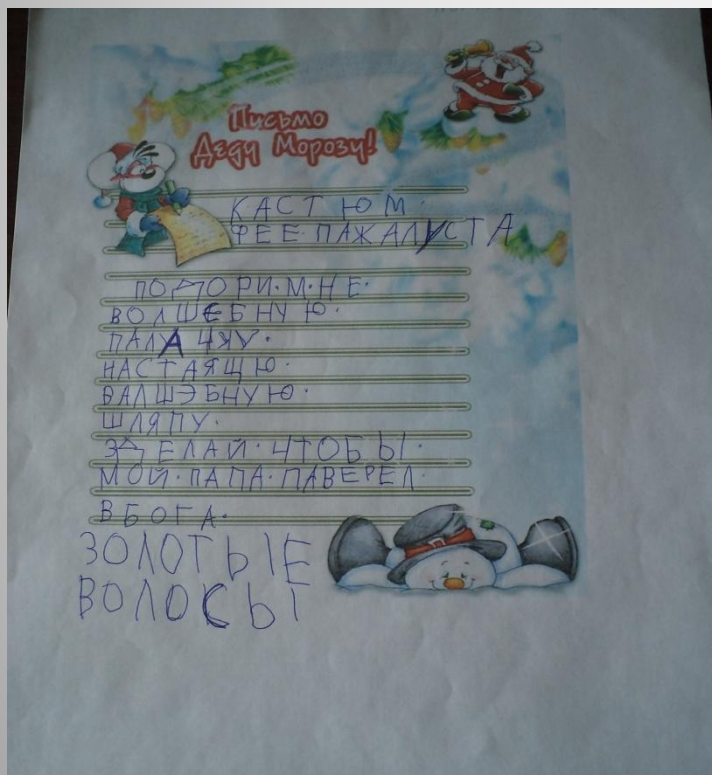 Письмо
Деду Морозу!
КАСТЮМ.
ФЕЕ. ПАЖАЛУСТА
ПОДОРИ. М. НЕ.
ВОЛШЕБНУЮ.
ПАЛАЧКУ.
НАСТАЯЩЮ.
ВАЛШЭБНУЮ.
ШЛЯПУ.
ЗДЕЛАЙ. ЧТОБЫ.
МОЙ. ПАПА. ПАВЕРЕЛ.
ВБОГА.
ЗОЛОТЫЕ
ВОЛОСЫ